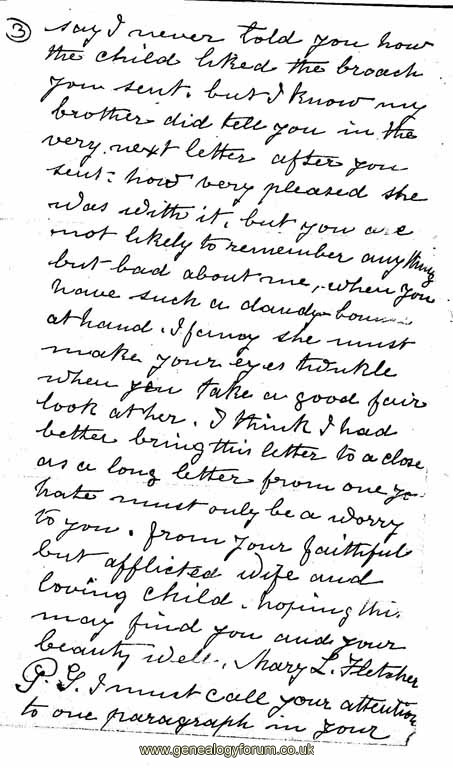 ③ say I never told you how
the child liked the broach
you sent. but I know my
brother did tell you in the
very next letter after you
sent: how very pleased she
was with it, but you are
not likely to remember anything
but bad about me, when you
have such a dandy
at hand. I fancy she must
make your eyes twinkle
when you take a good fair
look at her. I think I had
better bring this letter to a close
as a long letter from one yo
hate must only be a worry
to you. from your faithful
but afflicted wife and
loving child. hoping this
may find you and your
beauty well. Mary L. Fletcher
P.S. I must call your attention
to one paragraph in your
www.genealogyforum.co.uk